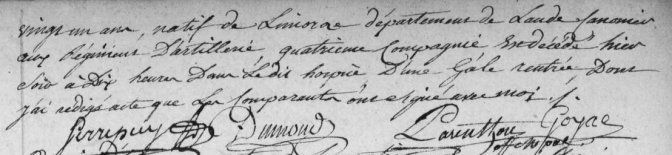 vingt un ans, natif de Limoux département de Laude Canonier
aux Régiment D'artillerie quatrieme Compagnie Est décédé hier
Soir à Dix heures Dans Le dit hospice D'une Gale rentrée Dont
j'ai redigé acte que Les Comparants ont signé avec moi ./.
Dumond Parenthou Goyae
off. de l'état